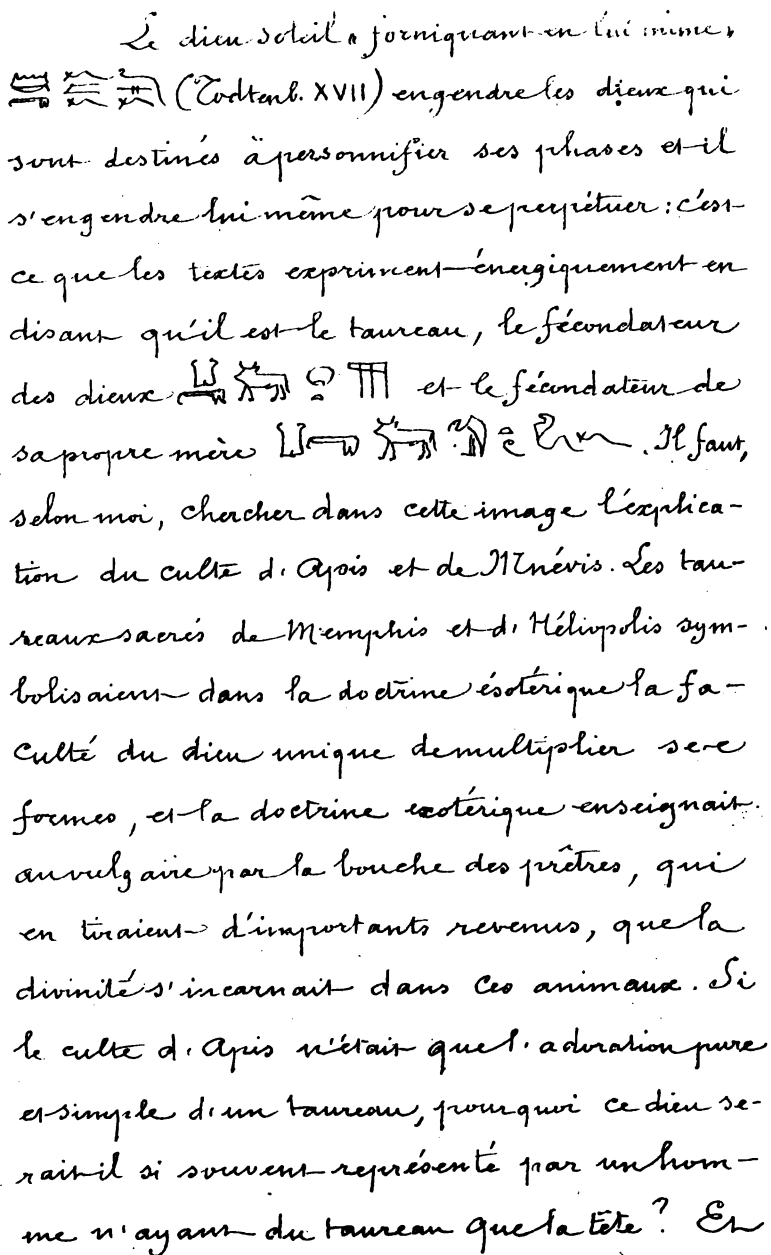 Le dieu soleil, forniquant en lui même,
(Todtenb. XVII) engendre les dieux qui
sont destinés à personnifier ses phases et il
s'engendre lui même pour se perpétuer : c'est
ce que les textes expriment énergiquement en
disant qu'il est le taureau, le fécondateur
des dieux et le fécondateur de
sa propre mère . Il faut,
selon moi, chercher dans cette image l'explica-
tion du culte d'Apis et de Mnévis. Les tau-
reaux sacrés de Memphis et d'Héliopolis sym-
bolisaient dans la doctrine ésotérique la fa-
culté du dieu unique de multiplier ses
formes, et la doctrine exotérique enseignait
au vulgaire par la bouche des prêtres, qui
en tiraient d'importants revenus, que la
divinité s'incarnait dans ces animaux. Si
le culte d'Apis n'était que l'adoration pure
et simple d'un taureau, pourquoi ce dieu se-
rait-il si souvent représenté par un hom-
me n'ayant du taureau que la tête ? Et